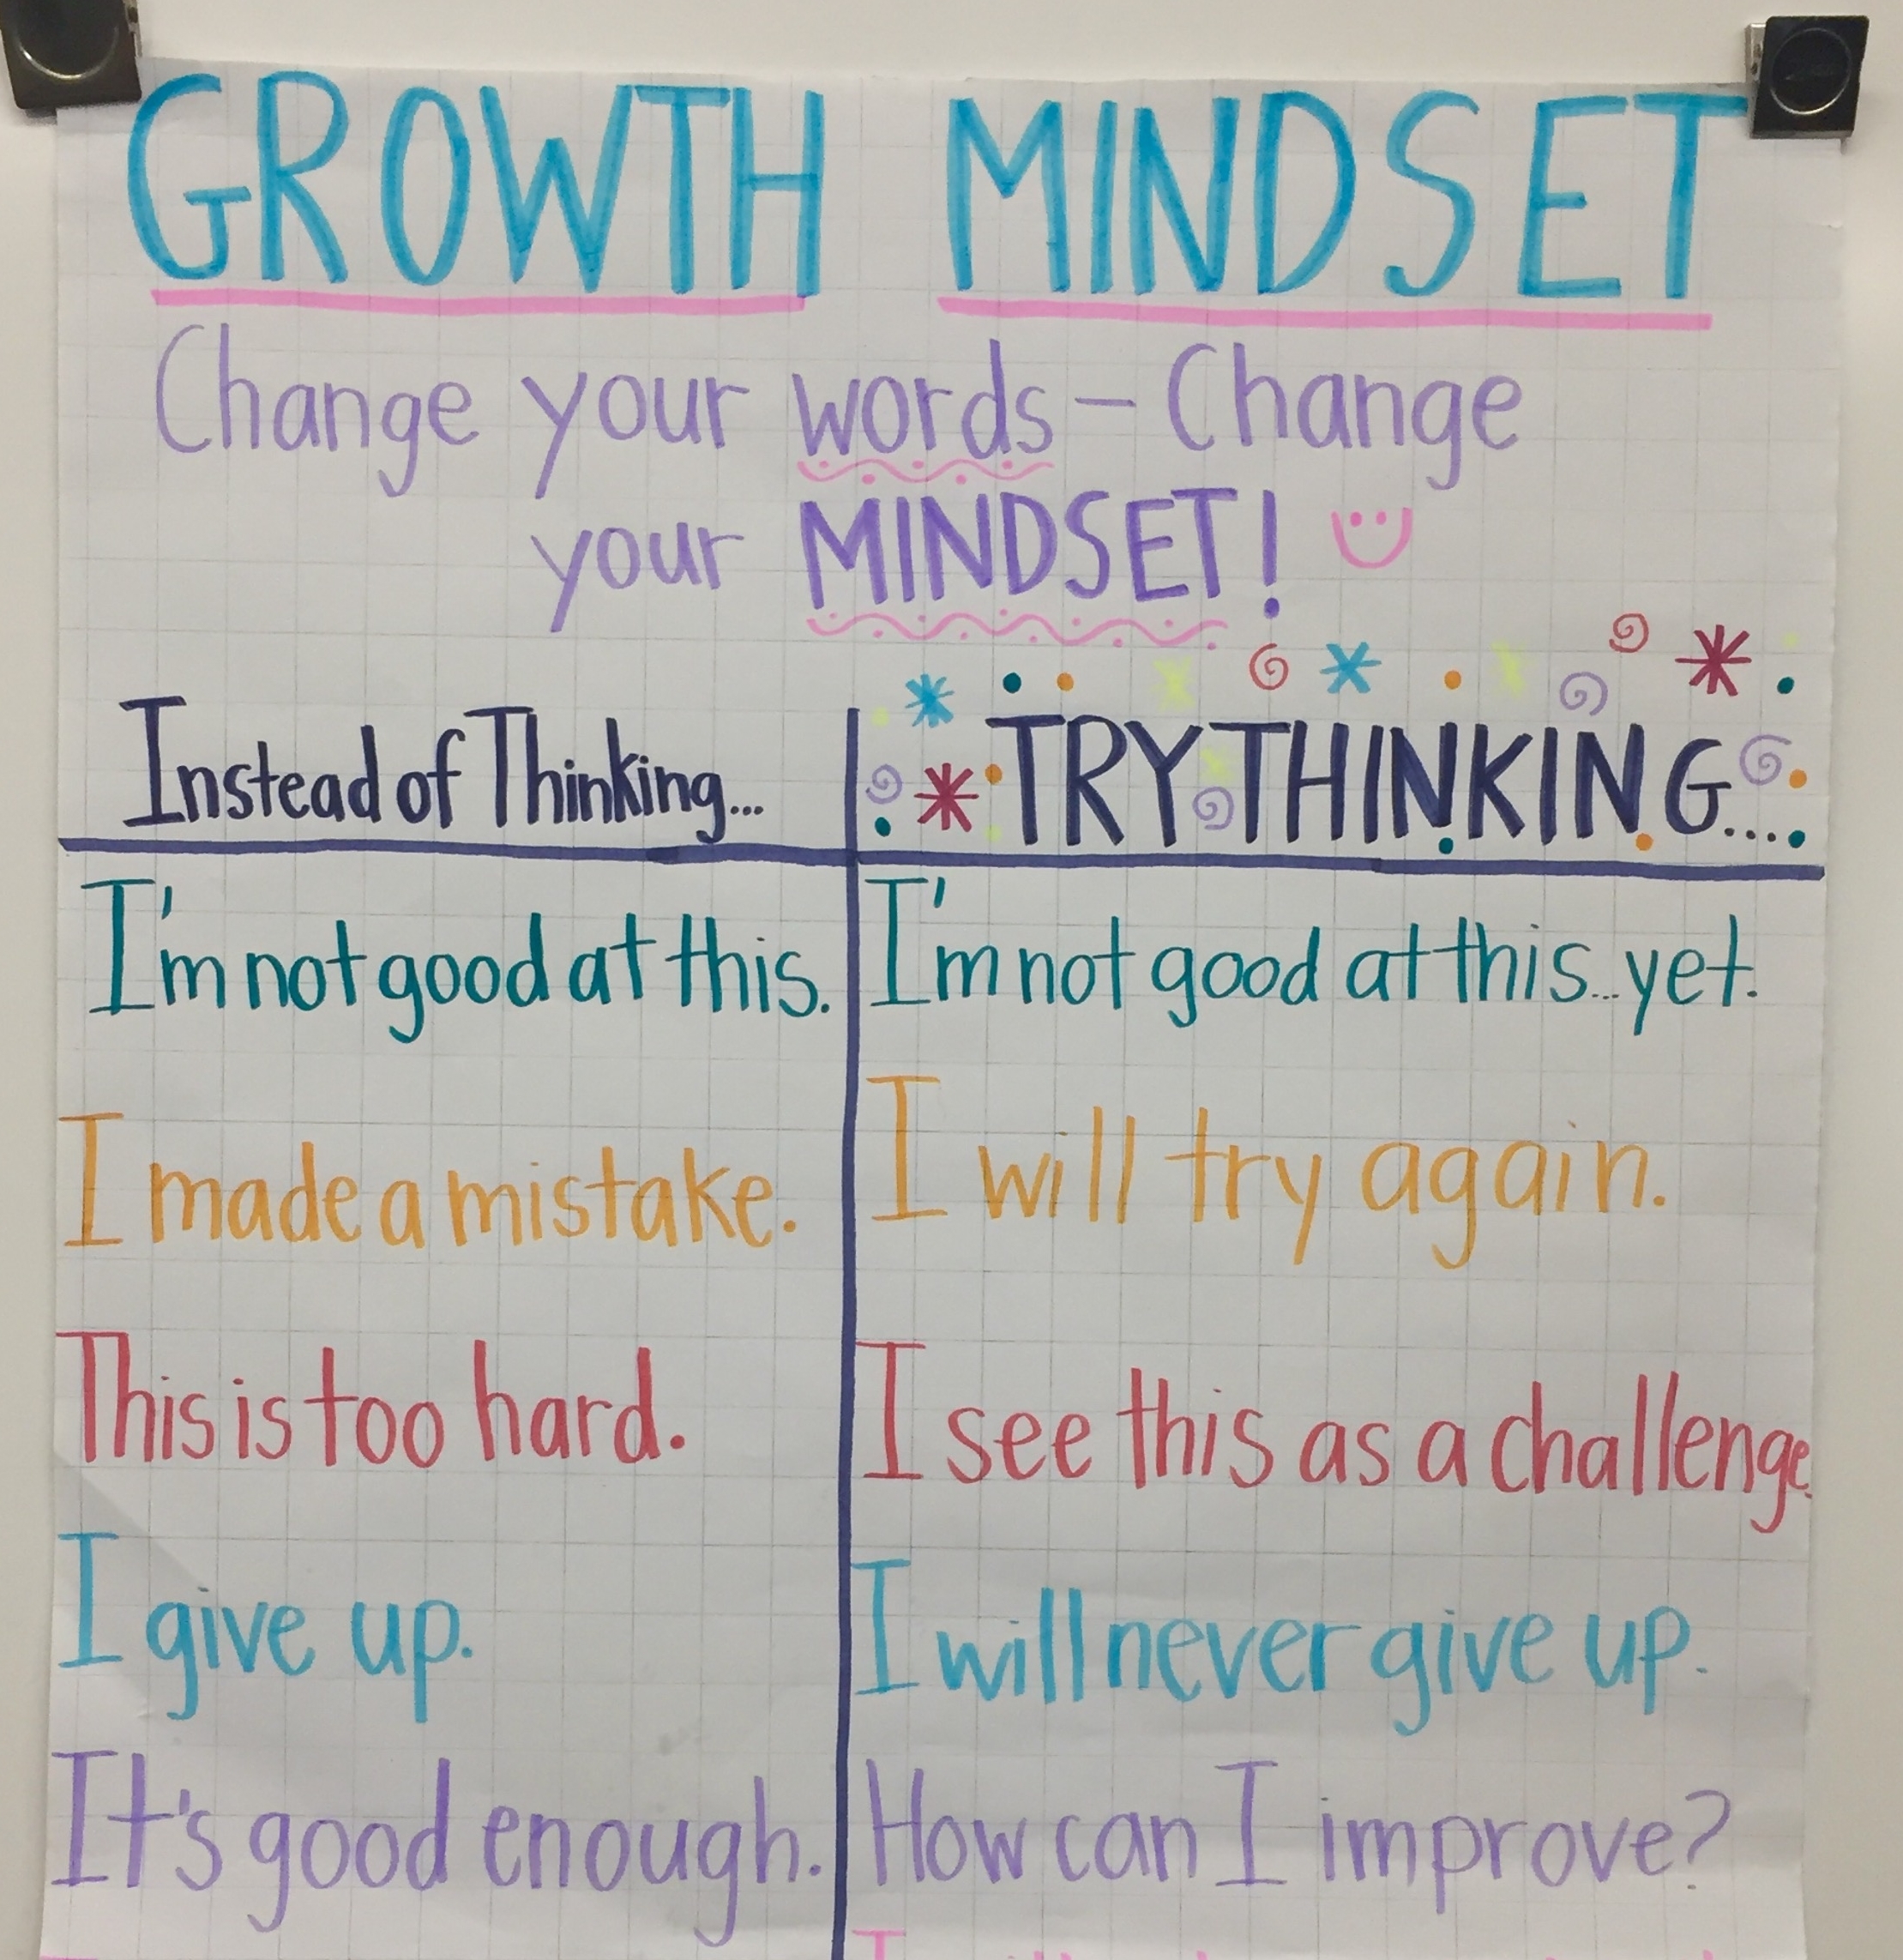 GROWTH MINDSET
Change your words - Change
your MINDSET!
Instead of Thinking... TRY THINKING....
I'm not good at this. I'm not good at this...yet.
I made a mistake. I will try again.
This is too hard. I see this as a challenge.
I give up. I will never give up.
It's good enough. How can I improve?